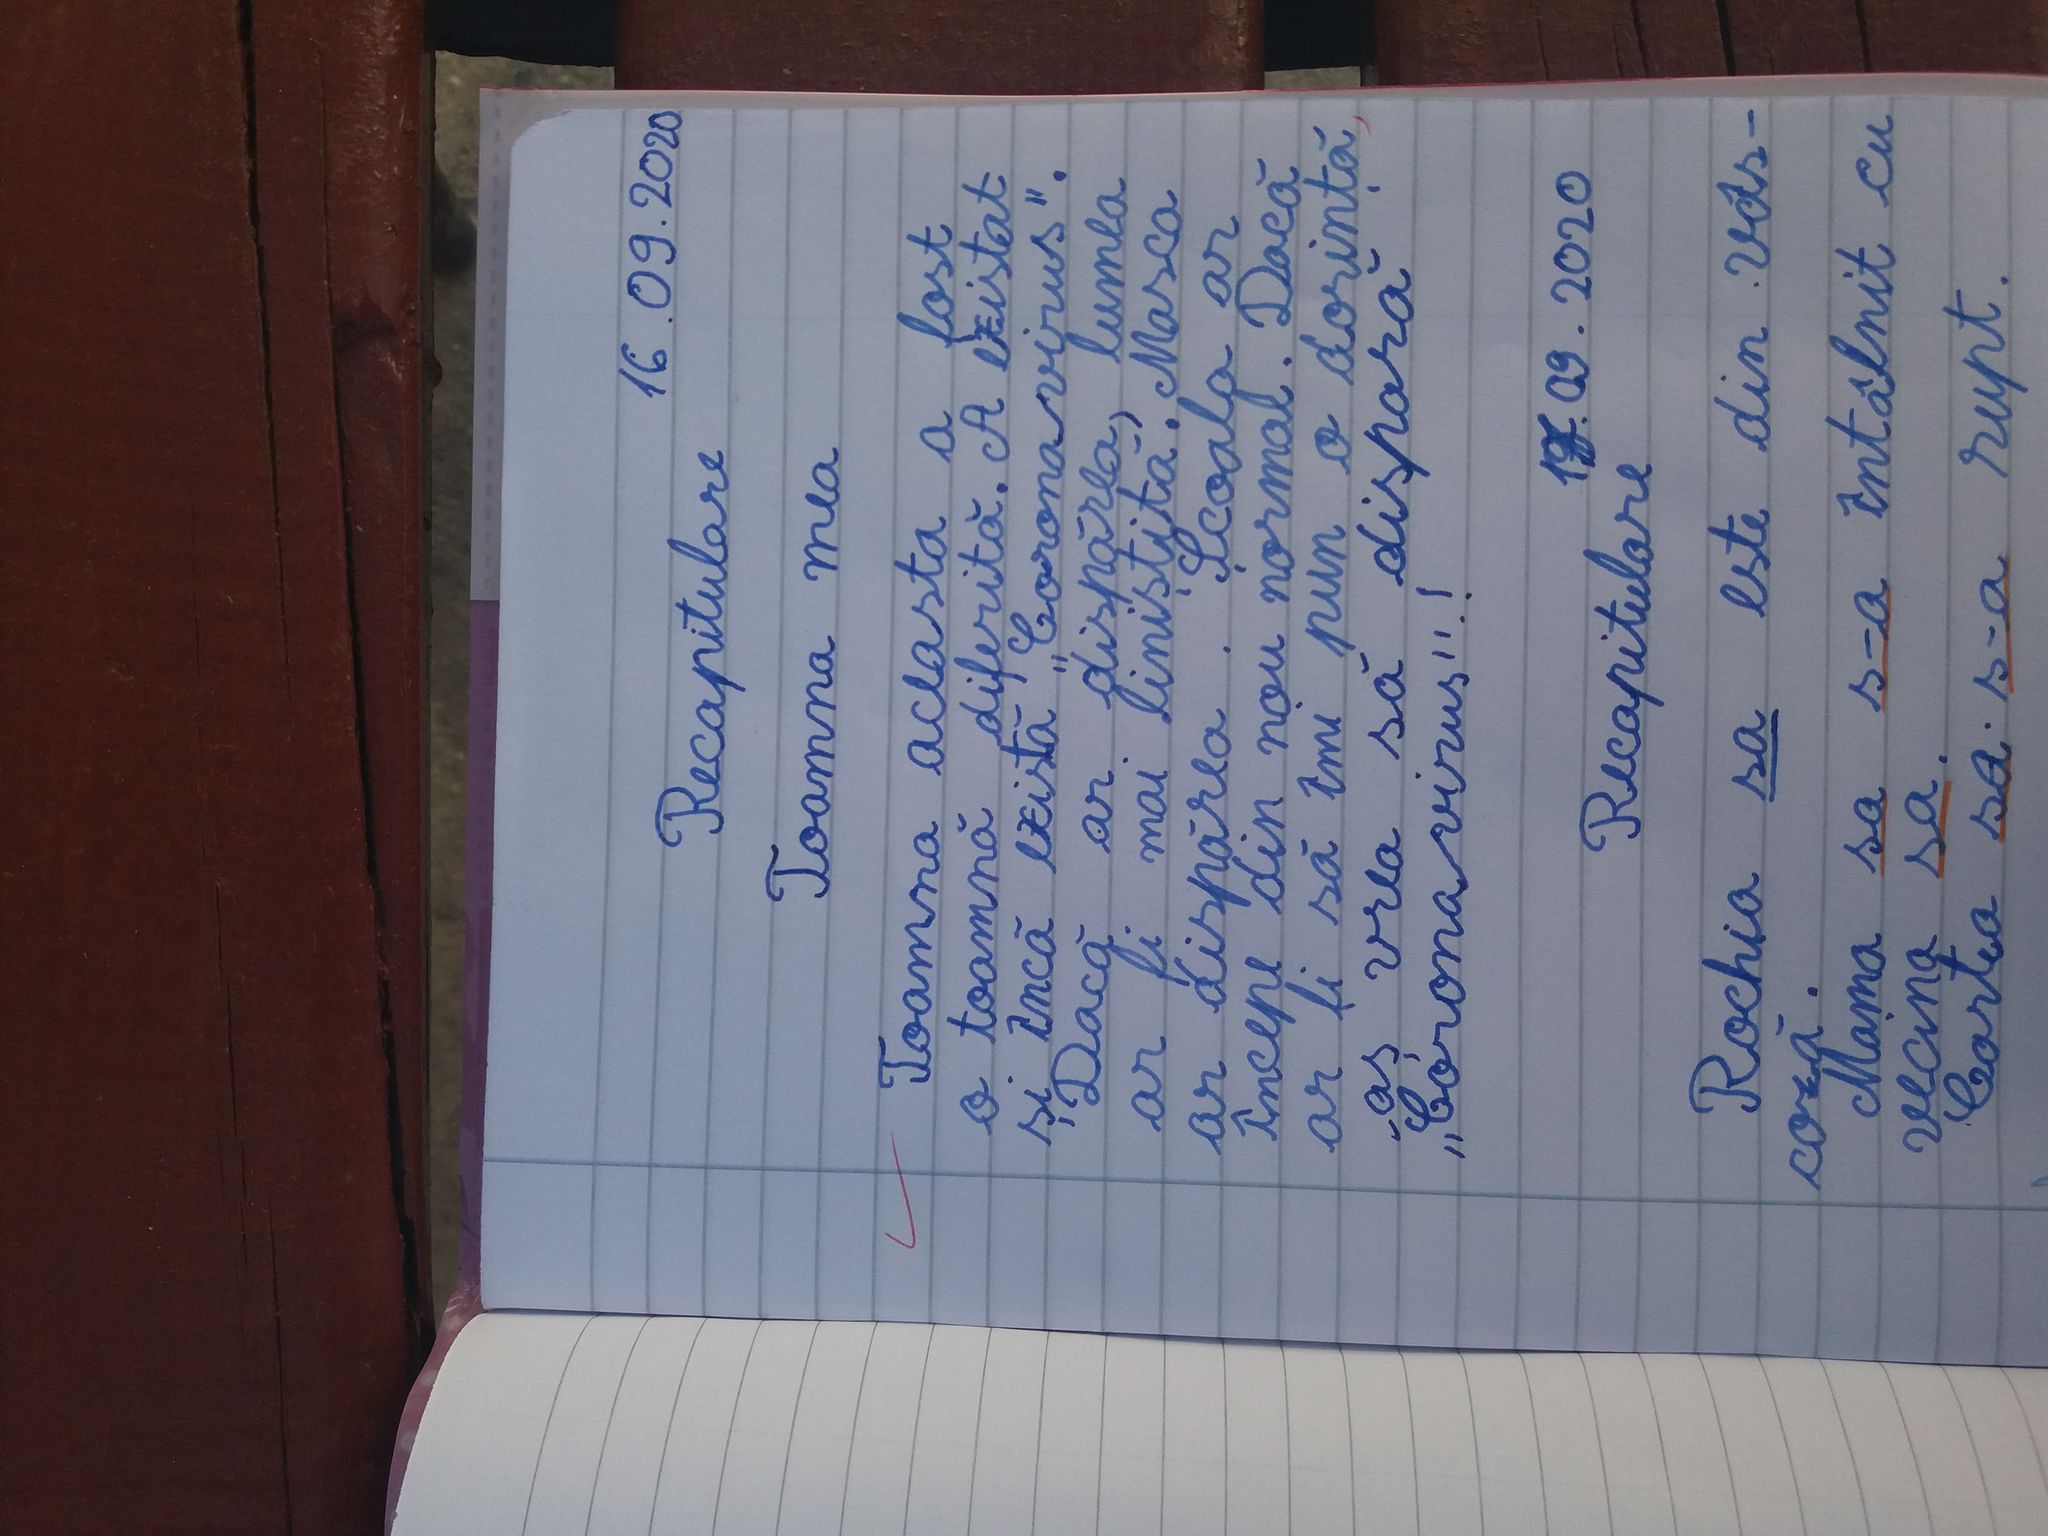 16.09.2020
Recapitulare
Toamna mea
Toamna aceasta a fost
o toamnă diferită. A existat
și încă există „Coronavirus".
Dacă ar dispărea, lumea
ar fi mai liniștită. Masca
ar dispărea. Școala ar
începe din nou normal. Dacă
ar fi să îmi pun o dorință,
aș vrea să dispară
„Coronavirus"!
17.09.2020
Recapitulare
Rochia sa este din vâs-
coză.
Mama sa s-a întâlnit cu
vecina sa.
Cartea sa s-a rupt.